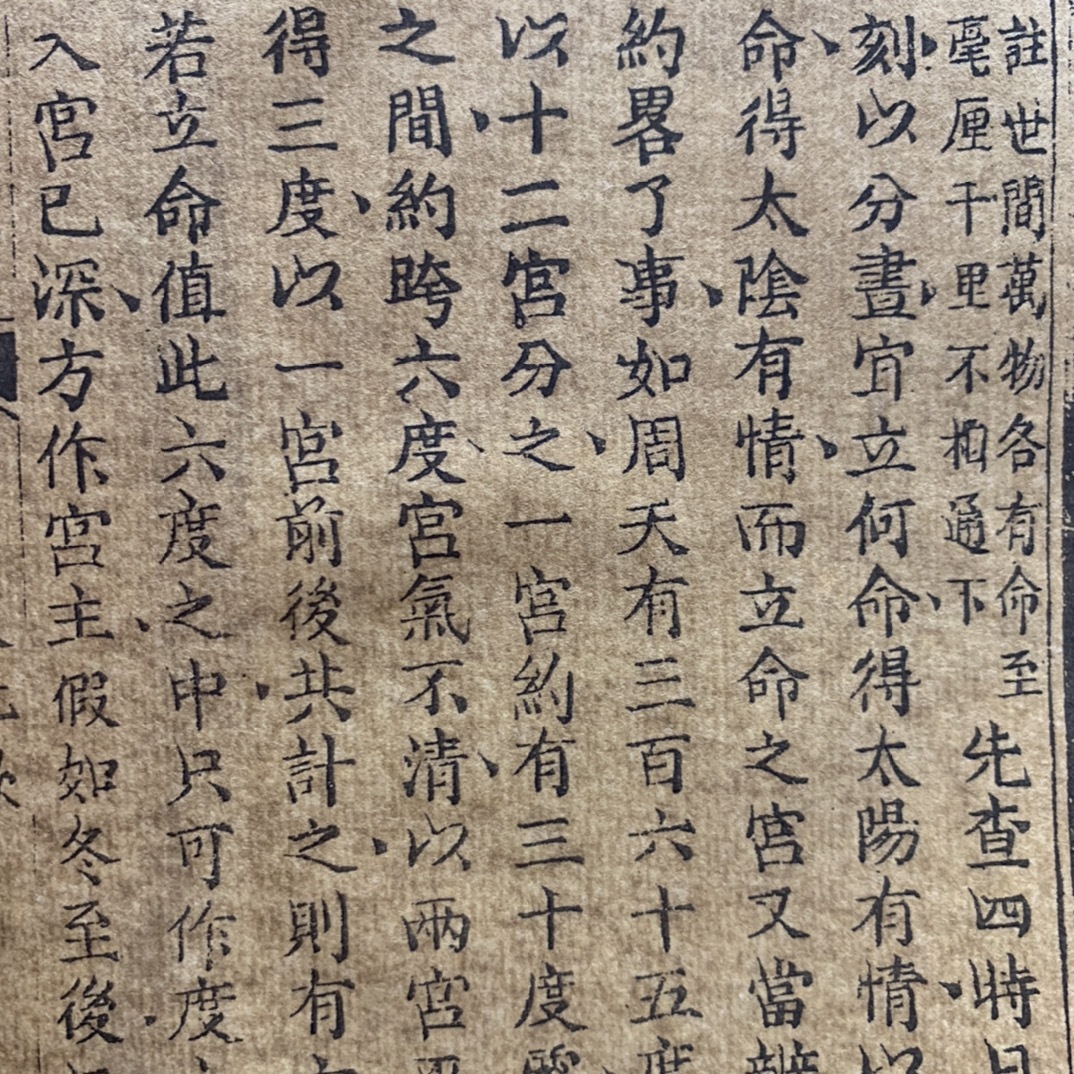 註世間萬物各有命至
毫厘千里不相通下
先查四時
刻以分晝宜立何命得太陽有情以
命得太陰有情而立命之宮又當
約畧了事如周天有三百六十五度
以十二宮分之一宮約有三十度
之間約跨六度宮氣不清以兩宮
得三度以一宮前後共計之則有
若立命值此六度之中只可作度
入宮已深方作宮主假如冬至後